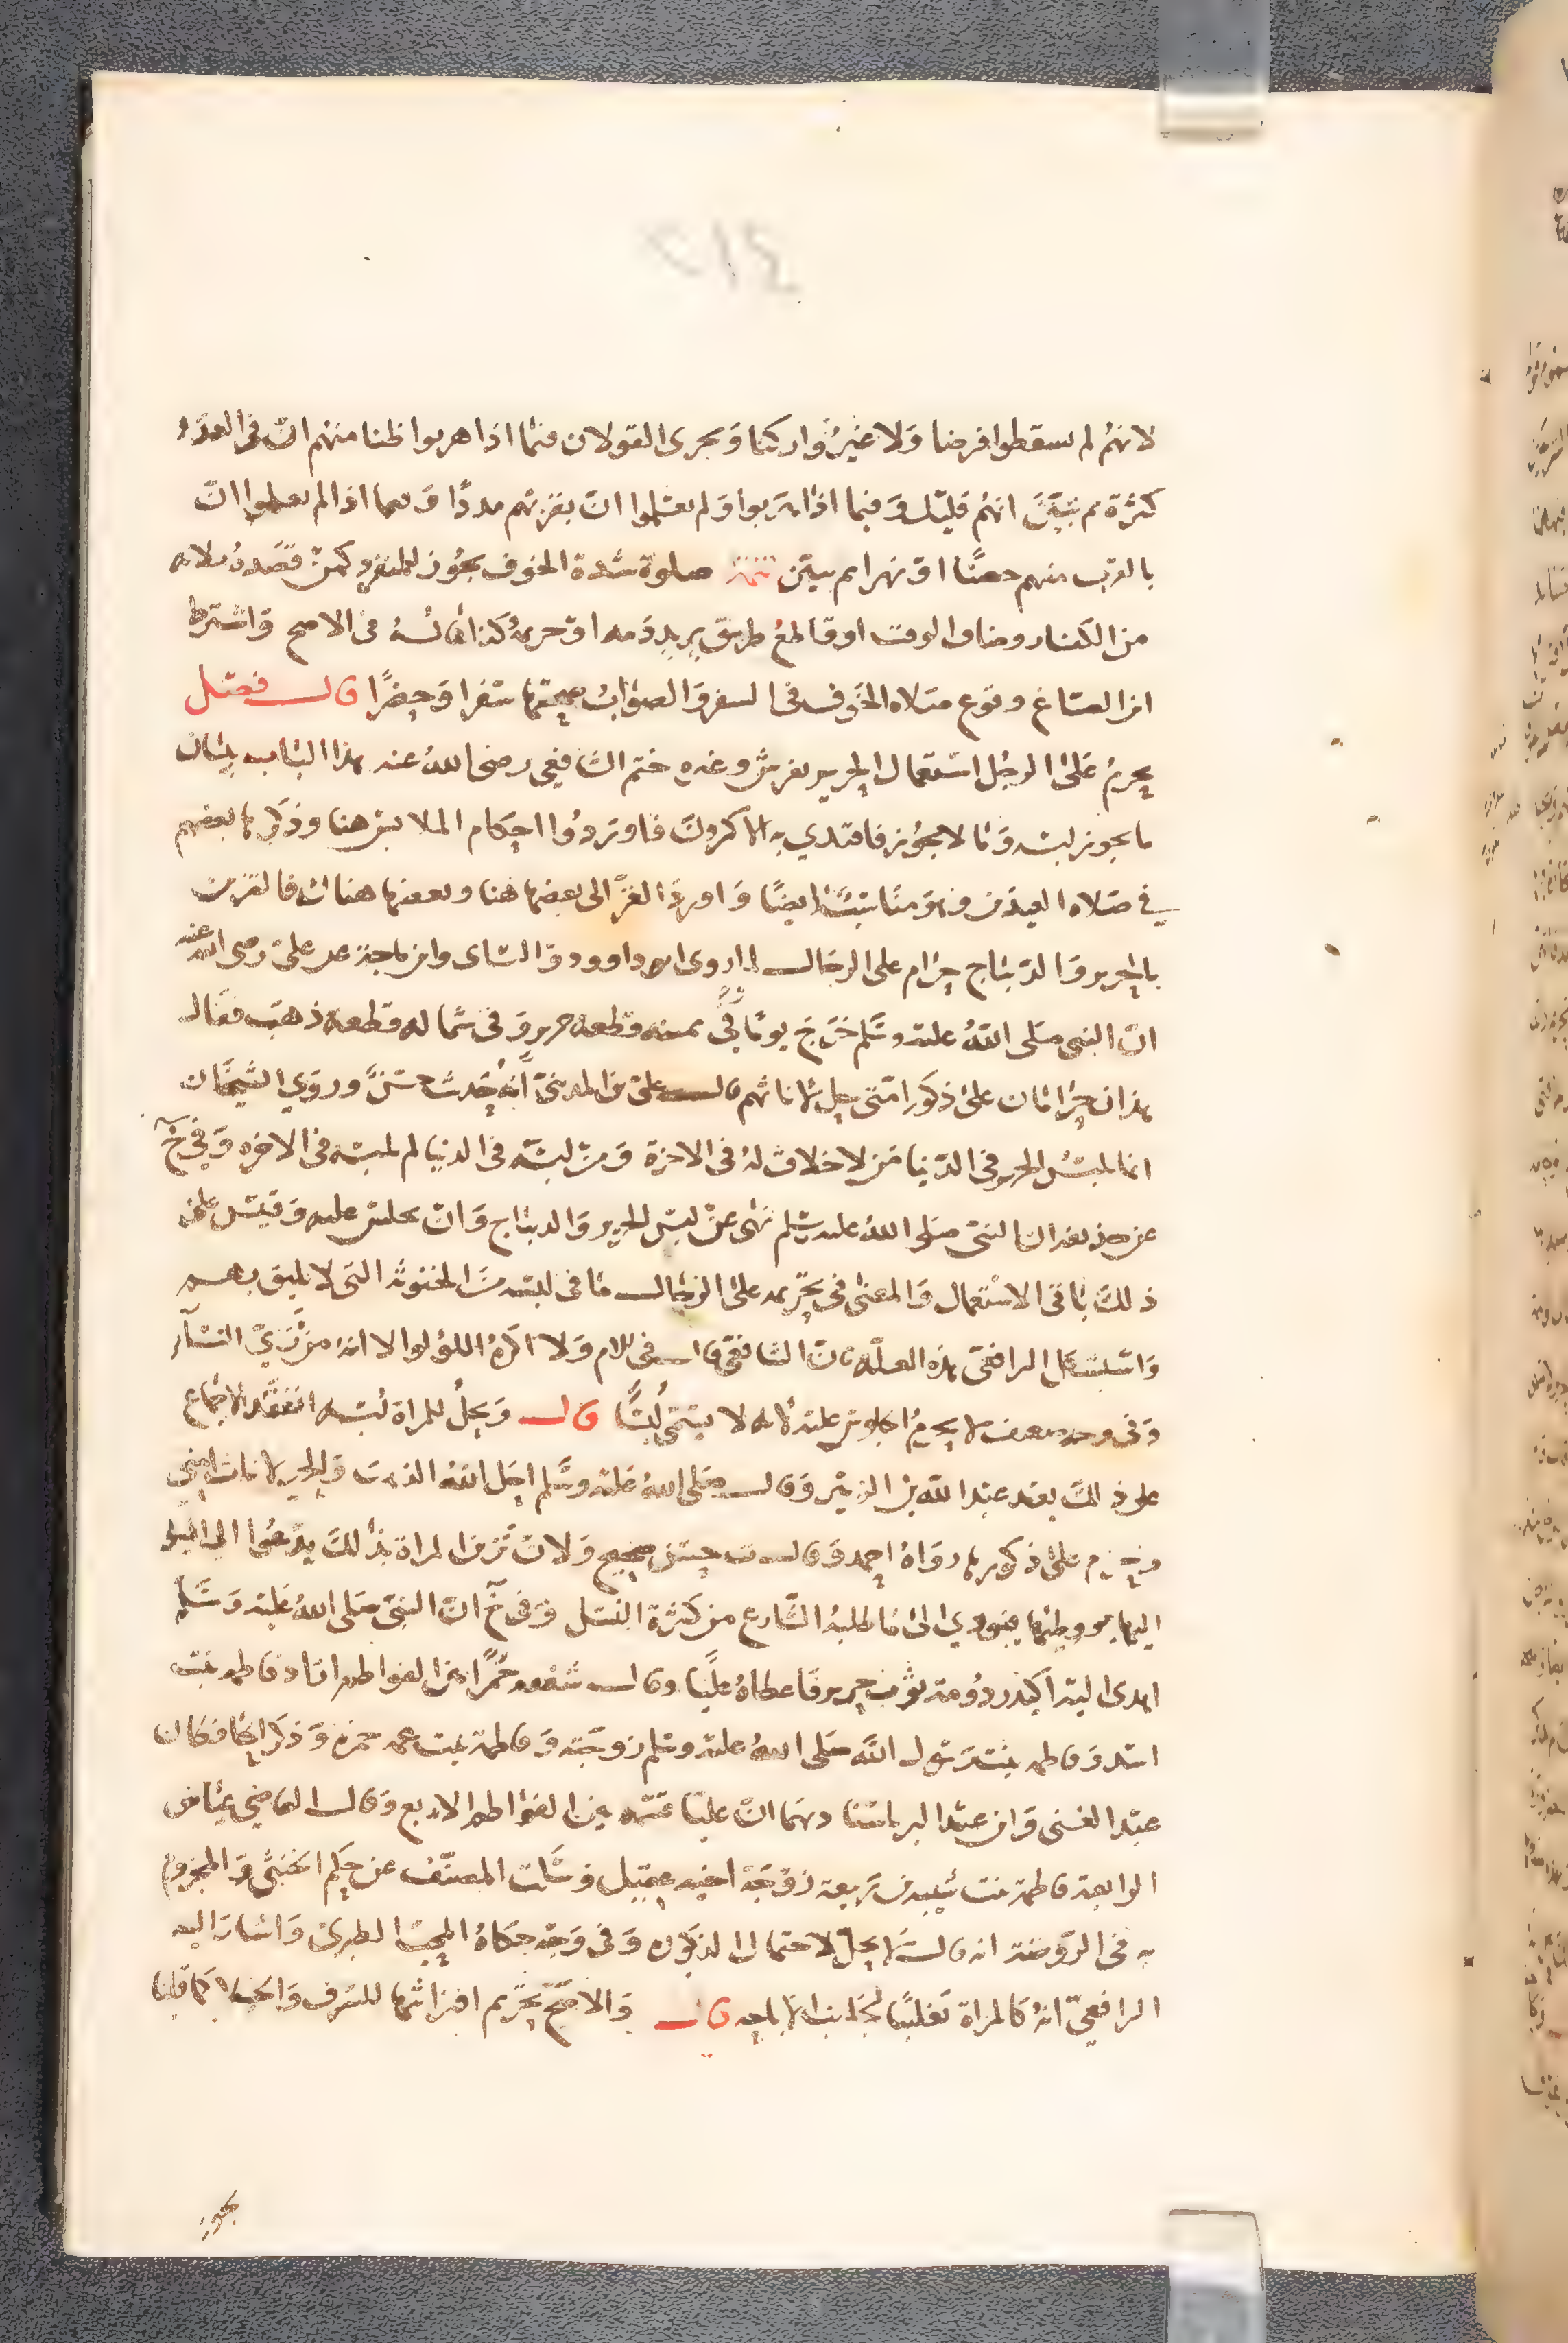 ٢١٤
لانهم لم يسقطوا فرضا ولا غيروا ركنا ويجرى القولان فيما اذا هربوا ظنا منهم ان فى العدو
كثرة ثم تبين انهم قليل وفيما اذا هربوا ولم يعلموا ان بقربهم مددا وفيما اذا لم يعلموا ان
بالقرب منهم حصنا او نهرا ثم تبين تتمة صلوة شدة الخوف يجوز للمنفرد كمن قصده
من الكفار وضاق الوقت او قاطع طريق يريد دمه او حريمه كذا ماله فى الاصح واشترط
ابن الصباغ وقوع صلاه الخوف فى السفر والصواب صحتها سفرا وحضرا قال فصل
يحرم على الرجل استعمال الحرير بفرش وغيره ختم الشافعي رضى الله عنه هذا الباب ببيان
ما يجوز لبسه وما لا يجوز فاقتدي به الاكثرون فاوردوا احكام الملابس هنا وذكرها بعضهم
في صلاه العيدين وهو مناسب ايضا واورد الغزالى بعضها هنا وبعضها هناك فالتزين
بالحرير والديباج حرام على الرجال لما روى ابو داوود والنساى وابن ماجة عن على رضى الله عنه
ان النبى صلى الله عليه وسلم خرج يوما وفى يمينه قطعه حرير وفى شماله قطعه ذهب فقال
هذان حرامان على ذكور امتى حل لاناثهم قال على بن المدينى انه حديث حسن وروي الشيخان
انما يلبس الحرير فى الدنيا من لا خلاق له فى الاخرة ومن لبسه فى الدنيا لم يلبسه فى الاخره وفى خ
عن حذيفه ان النبى صلى الله عليه وسلم نهى عن لبس الحرير والديباج وان يجلس عليه وقيس على
ذلك باقى الاستعمال والمعنى فى تحريمه على الرجال ما فى لبسه من الخنوثه التى لا تليق بهم
واستشكل الرافعى هذه العله بان الشافعى قال فى الام ولا اكره اللؤلؤ الا انه من زي النساء
وفى وجه ضعيف لا يحرم الجلوس عليه لانه لا يسمى لبسا قال ويحل للمراة لبسه انعقد الاجماع
على ذلك بعد عبد الله بن الزبير وقال صلى الله عليه وسلم احل الله الذهب والحرير لاناث امتى
وحرم على ذكورها رواه احمد وقال ت حسن صحيح ولان تزين المراة بذلك يدعوا الى الميل
اليها ووطئها فيودي الى ما طلبه الشارع من كثرة النسل وفى خ ان النبى صلى الله عليه وسلم
اهدى اليه اكيدر دومة ثوب حرير فاعطاه عليا وقال شققه خمرا بين الفواطم اراد فاطمه بنت
اسد وفاطمه بنت رسول الله صلى الله عليه وسلم زوجته وفاطمة بنت عمه حمزه وذكر الحافظان
عبد الغنى وابن عبد البر باسنادهما ان عليا قسمه بين الفواطم الاربع وقال القاضى عياض
الرابعة فاطمة بنت شيبه بن ربيعة زوجة اخيه عقيل وسكت المصنف عن حكم الخنثى والمجزوم
به فى الروضة انه قال لا يحل لاحتمال الذكوره وفى وجه حكاه المحب الطبرى واشار اليه
الرافعي انه كالمراة تغليبا لجانب الاباحه قال والاصح تحريم افتراشها للسرف والخيلا كما قلنا
يجوز